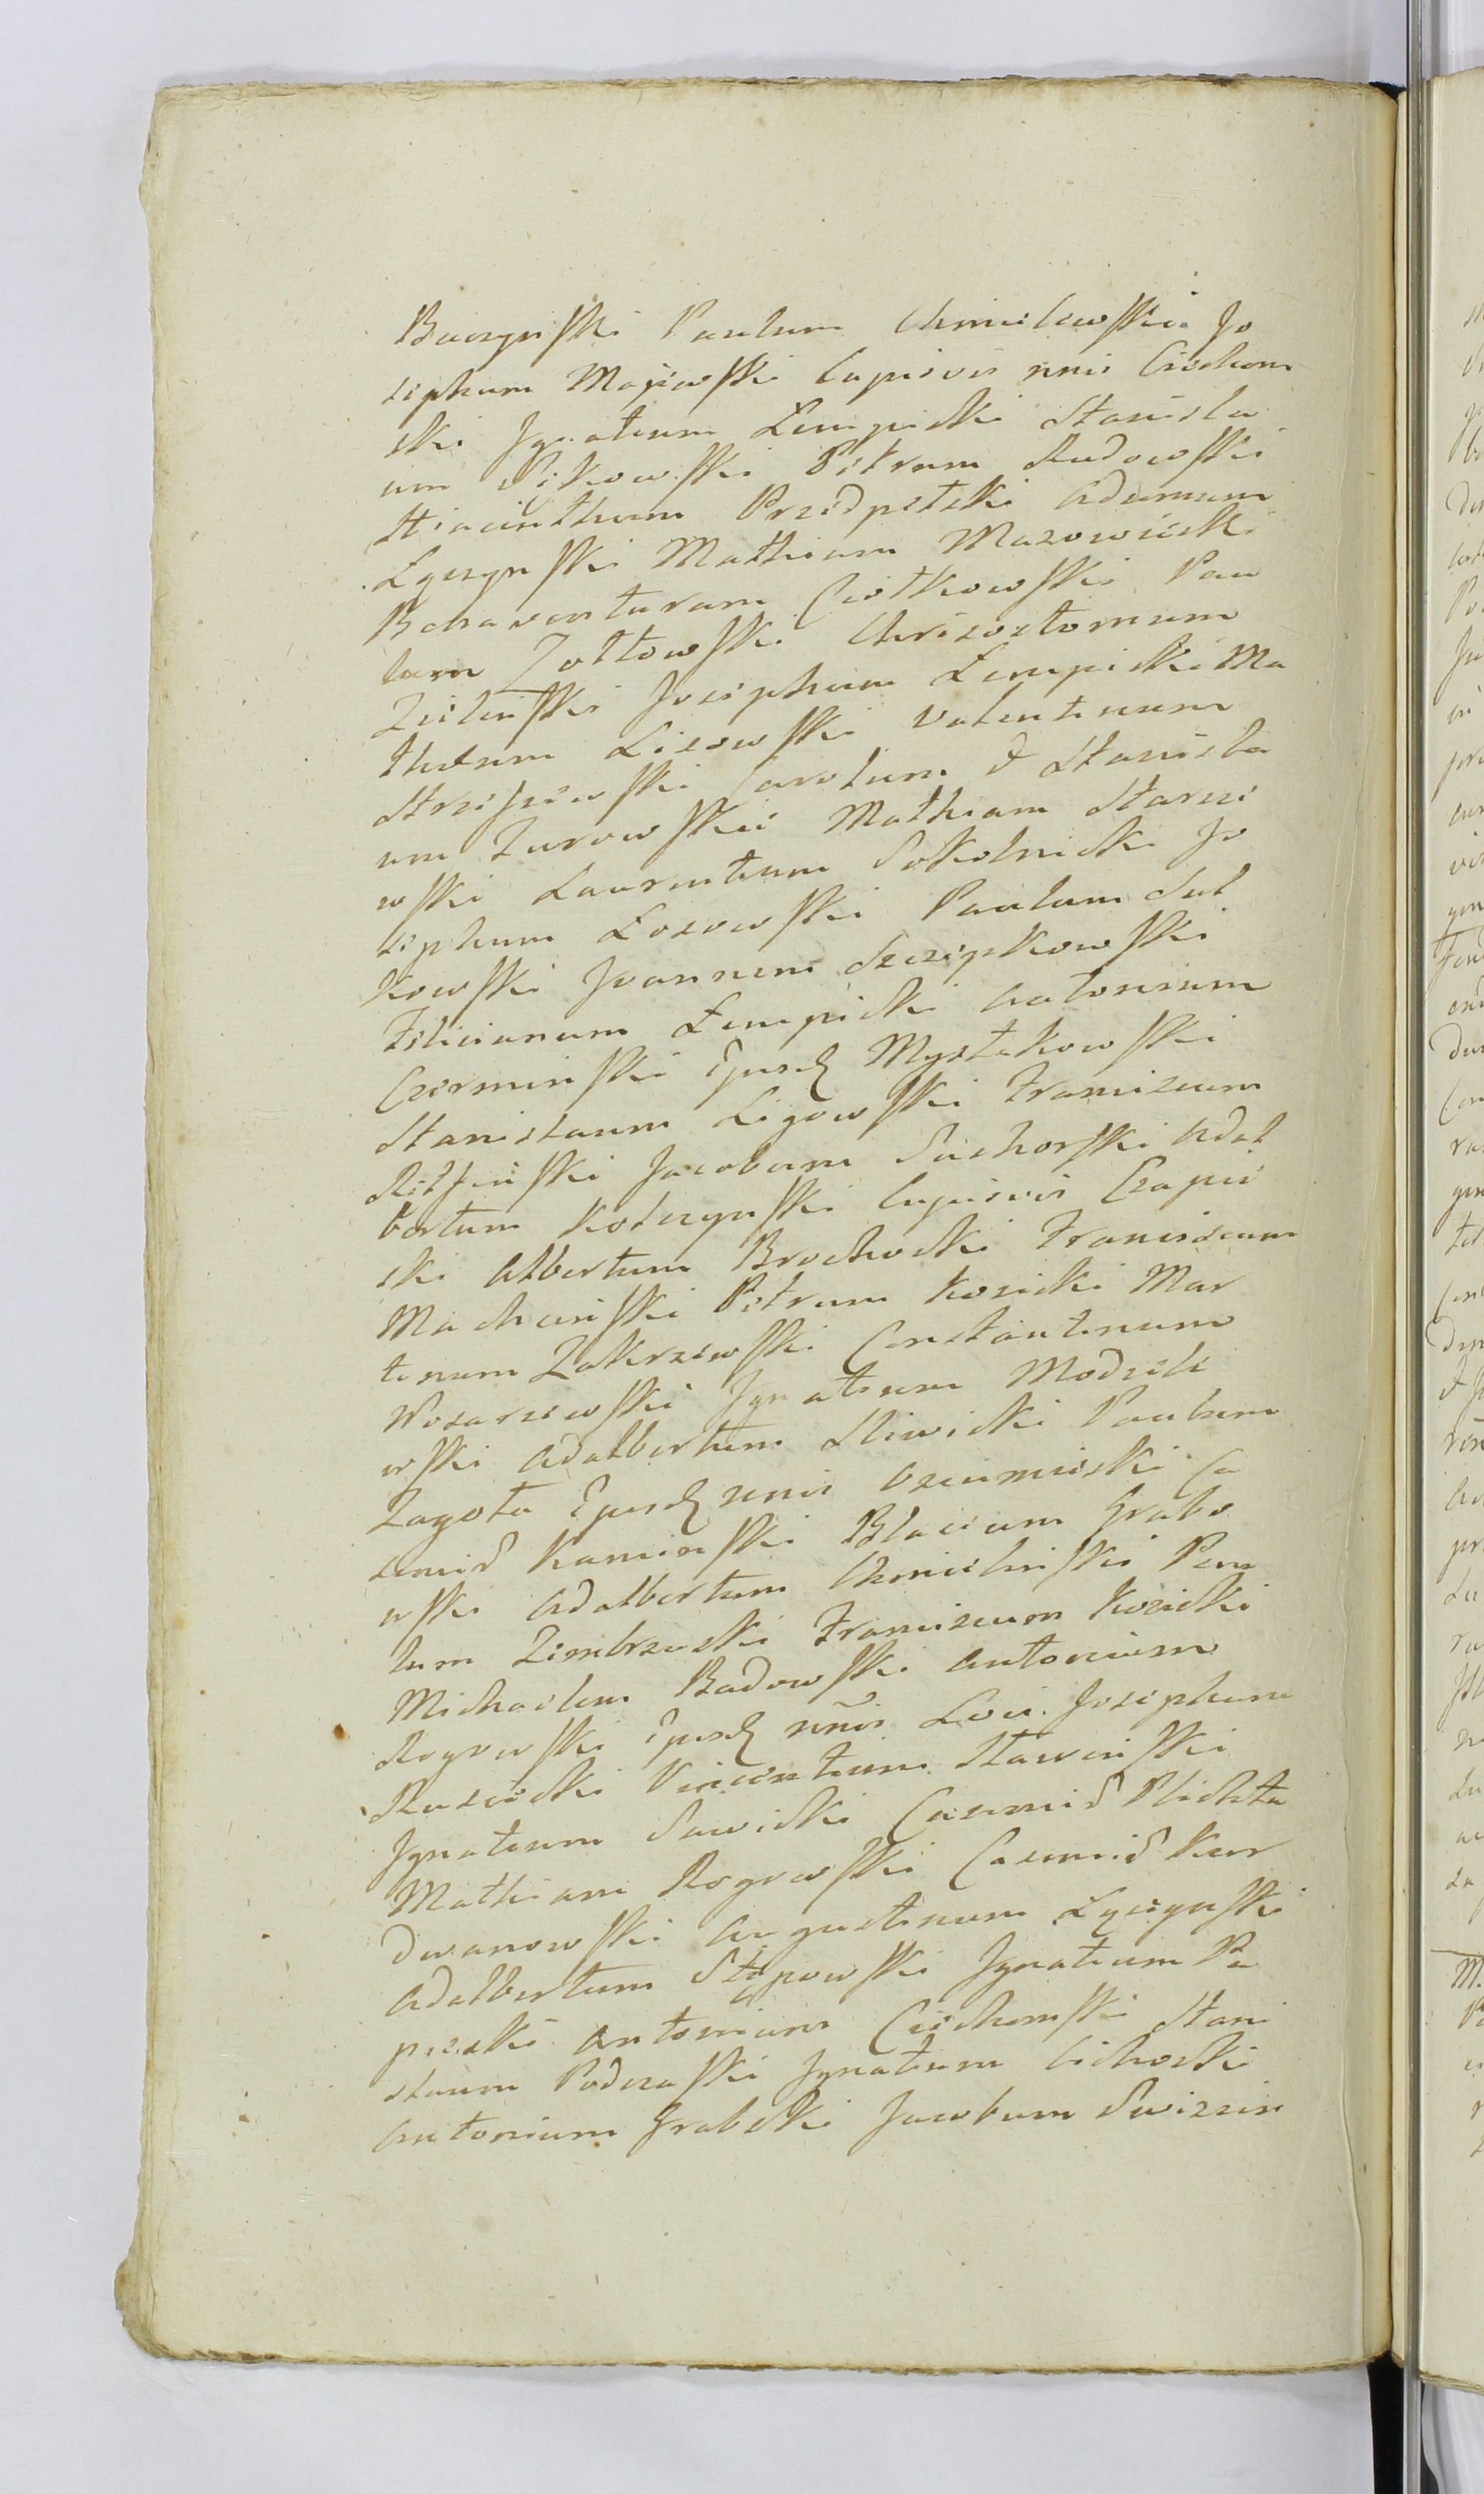 Buczynski Paulum Chmielewskii Jo
sephum Majewski cujusvis nnis Ciechom
ski Ignatium Łempicki Stanisla
um Pikowski Petrum Rudowski
Hiacinthum Przedpełski Adamum
Łyczynski Mathiam Mazowiecki
Bonaventuram Ciołkowski Pau
lum Zołtowski Chrisostomum
Zielinski Josephum Łempicki Ma
theum Lisowski Valentinum
Strzeszewski Carolum & Stanisla
um Zurowskii Mathiam Starze
wski Laurentium Sokolnicki Jo
sephum Łosowski Paulum Sul
kowski Joannem Szczepkowski
Felicianum Łempicki Antonium
Czerminski Ejusd Mystkowski
Stanislaum Ligowski Franciscum
Jacobum Suchorski Adal
bertum Kolczynski cujusvis Czapie
ski Albertum Brochocki Franciscum
Machcinski Petrum Kosicki Mar
tinum Zakrzewski Constantinum
Pozarzewski Ignatium Modzele
wski Adalbertum Sliwicki Paulum
Zagota Ejusd nnis Osiemieski Ca
simir Kaminski Blasium Grabo
wski Adalbertum Chmielinski Pau
lum Zembrzuski Franciscum Kosicki
Michaelem Badowski Antonium
Rogowski Ejusd nnis Loci Josephum
Ruscicki Vincentium Stawinski
Ignatium Sawicki Casimir Plichta
Mathiam Rogowski Casimir Kur
dwanowski Augustinum Łyczynski
Adalbertum Stępowski Ignatium Pa
pieski Antonium Ciechomski Stani
slaum Podczaski Ignatium Cichocki
Antonium Grabski Jacobum Swierzin